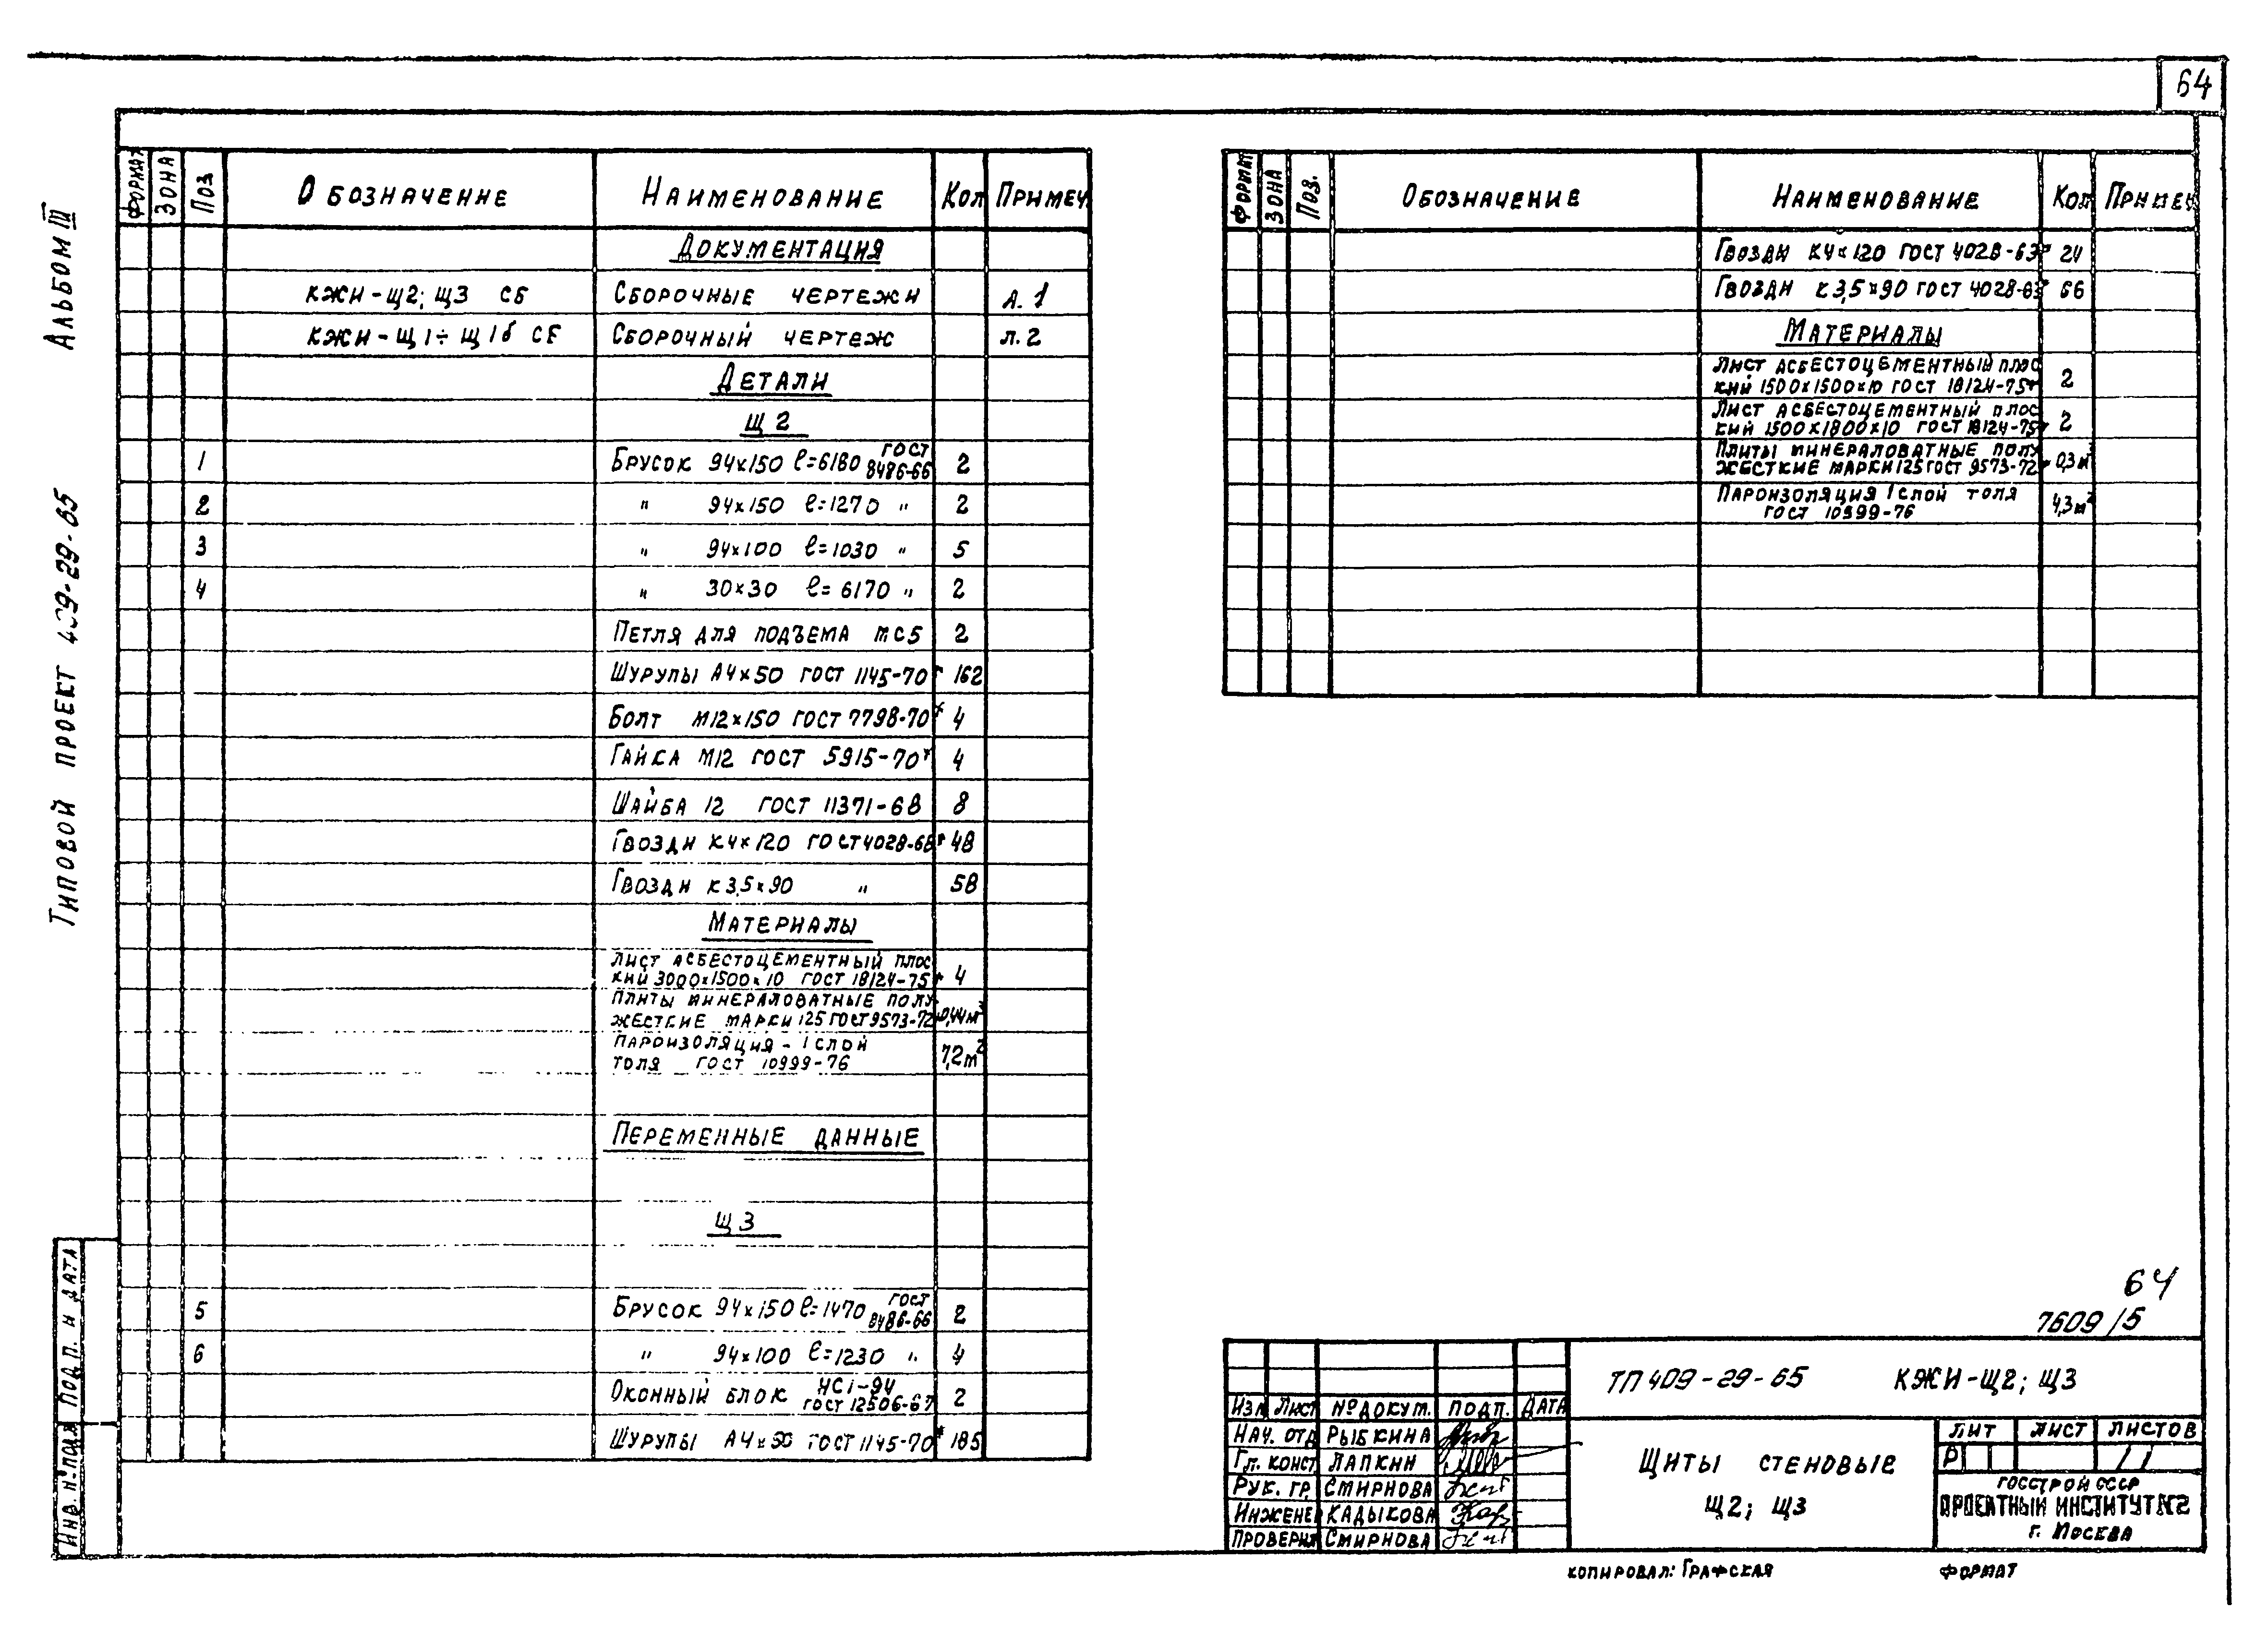 64
Альбом III
Типовой проект 409-29-65
Инв. № подл Подп. и дата
Формат Зона Поз Обозначение Наименование Кол Примеч.
Документация
КЖИ-Щ2; Щ3 СБ Сборочные чертежи л. 1
КЖИ-Щ1÷Щ16 СБ Сборочный чертеж л. 2
Детали
Щ2
1 Брусок 94×150 ℓ=6180 ГОСТ 8486-66 2
2 " 94×150 ℓ=1270 " 2
3 " 94×100 ℓ=1030 " 5
4 " 30×30 ℓ=6170 " 2
Петля для подъема МС5 2
Шурупы А4×50 ГОСТ 1145-70* 162
Болт М12×150 ГОСТ 7798-70* 4
Гайка М12 ГОСТ 5915-70* 4
Шайба 12 ГОСТ 11371-68 8
Гвозди К4×120 ГОСТ 4028-63* 48
Гвозди К3,5×90 " 58
Материалы
Лист асбестоцементный плос
кий 3000×1500×10 ГОСТ 18124-75* 4
Плиты минераловатные полу
жесткие марки 125 ГОСТ 9573-72* 0,44м³
Пароизоляция - 1 слой
толя ГОСТ 10999-76 7,2м²
Переменные данные
Щ3
5 Брусок 94×150 ℓ=1470 ГОСТ 8486-66 2
6 " 94×100 ℓ=1230 " 4
Оконный блок НС1-94
ГОСТ 12506-67 2
Шурупы А4×50 ГОСТ 1145-70* 185
Формат Зона Поз. Обозначение Наименование Кол Примеч
Гвозди К4×120 ГОСТ 4028-63* 24
Гвозди К3,5×90 ГОСТ 4028-63* 66
Материалы
Лист асбестоцементный плос
кий 1500×1500×10 ГОСТ 18124-75* 2
Лист асбестоцементный плос
кий 1500×1800×10 ГОСТ 18124-75* 2
Плиты минераловатные полу
жесткие марки 125 ГОСТ 9573-72* 0,3м³
Пароизоляция 1 слой толя
ГОСТ 10999-76 4,3м²
64
7609/5
ТП 409-29-65 КЖИ-Щ2; Щ3
Изм Лист № докум. Подп. Дата
Нач. отд Рыбкина
Гл. конст Лапкин
Рук. гр. Смирнова
Инженер Кадыкова
Проверил Смирнова
Щиты стеновые
Щ2; Щ3
Лит Лист Листов
Р 1
Госстрой СССР
Проектный институт №2
г. Москва
Копировал: Графская Формат